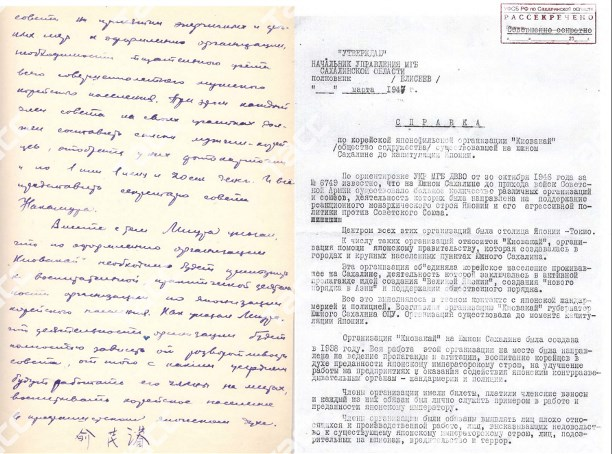 совета на принятии энергичных и
мер к оформлению организации,
необходимости тщательного учета
всего совершеннолетнего мужского
корейского населения. При этом каждый
член совета на своих участках дол-
жен составить списки мужчин-корей-
цев, отобрать у них фотокарточки
по 1 или 1 иен и сен денег. И все
представить секретарю совета
Накамура.
Вместе с тем указал,
что по оформлению организации
"Киовакай" необходимо будет
к воспитательной деятель-
ности организации по японизации
корейского населения. Как указал
деятельность организации будет
полностью зависеть от
совета, от того с каким усердием
будут работать его члены на местах,
воспитывать корейское население
в японском духе.
УФСБ РФ по Сахалинской области
РАССЕКРЕЧЕНО
Совершенно секретно
"УТВЕРЖДАЮ"
НАЧАЛЬНИК УПРАВЛЕНИЯ МГБ
САХАЛИНСКОЙ ОБЛАСТИ
ПОЛКОВНИК / ЕЛИСЕЕВ /
" " марта 1947 г.
С П Р А В К А
по корейской японофильской организации "Киовакай"
/общество содружества/ существовавшей на Южном
Сахалине до капитуляции Японии.
По ориентировке УКР МГБ ДВВО от 30 октября 1946 года за
№ 6749 известно, что на Южном Сахалине до прихода войск Советс-
кой Армии существовало большое количество различных организаций
и союзов, деятельность которых была направлена на поддержание
реакционного монархического строя Японии и его агрессивной по
литики против Советского Союза.
Центром всех этих организаций была столица Японии -Токио.
К числу таких организаций относится "Киовакай", органи-
зация помощи японскому правительству, которая создавалась в
городах и крупных населенных пунктах Южного Сахалина.
Эта организация об"единяла корейское население проживав-
шее на Сахалине, деятельность которой заключалась в активной
пропаганде идей создания "Великой Японии", создания "нового
порядка в Азии" и поддержании общественного порядка.
Все это выполнялось в тесном контакте с японской жандар-
мерией и полицией. Возглавлял организацию "Киовакай" губернатор
Южного Сахалина ОЦУ. Организация существовала до момента капиту-
ляции Японии.
Организация "Киовакай" на Южном Сахалине была создана
в 1938 году. Вся работа этой организации на месте была направле-
на на ведение пропаганды и агитации, воспитание корейцев в
духе преданности японскому императорскому строю, на улучшение
работы на предприятиях и оказания содействия японским контрразве-
дывательным органам - жандармерии и полиции.
Члены организации имели билеты, платили членские взносы
и каждый из них обязан был лично служить примером в работе и
преданности японскому императору.
Члены организации были обязаны выявлять лиц плохо отно-
сящихся к производственной работе, лиц, высказывающих недовольст-
во к существующему японскому императорскому строю, лиц, подоз-
рительных на шпионаж, вредительство и террор.